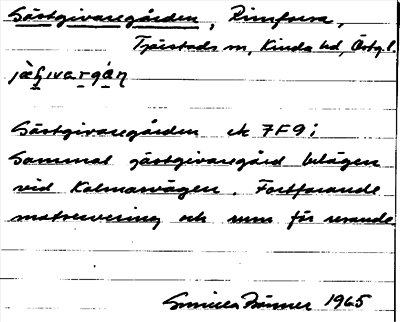 Gästgivaregården, Rimforsa,
Tjärstads sn, Kinda hd, Östgl.
Gästgivaregården ek 7F9i
Gammal gästgivaregård belägen
vid Kalmarvägen. Fortfarande
matservering och rum för resande.
Gunilla 1965